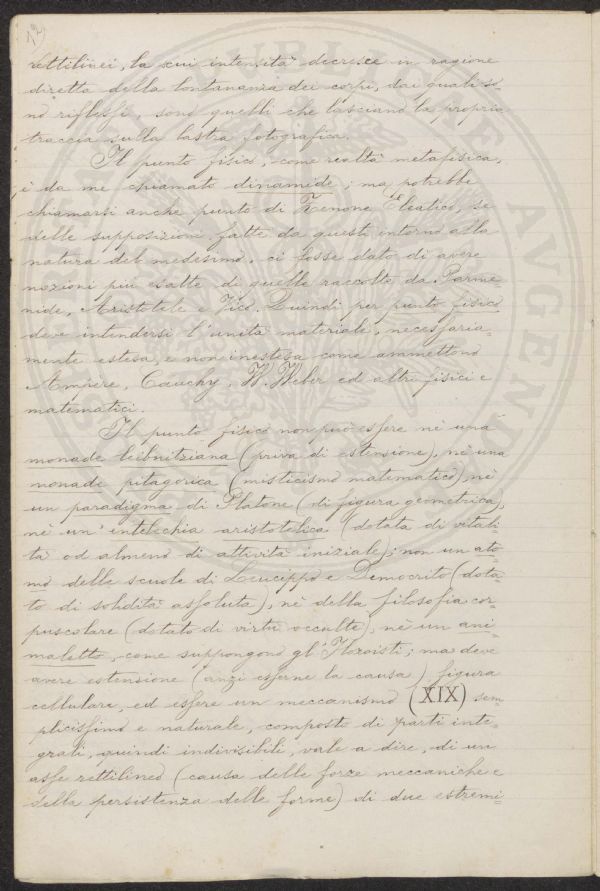 12
rettilinei, la cui intensità decresce in ragione
diretta della lontananza dei corpi, dai quali so=
no riflessi, sono quelli che lasciano la propria
traccia sulla lastra fotografica.
Il punto fisico, come realtà metafisica,
è da me chiamato dinamide; ma potrebbe
chiamarsi anche punto di Zenone Eleatico, se
delle supposizioni fatte da questi intorno alla
natura del medesimo, ci fosse dato di avere
nozioni più esatte di quelle raccolte da Parme
nide, Aristotele e Vico. Quindi per punto fisico
deve intendersi l'unità materiale, necessaria=
mente estesa, e non inestesa come ammettono
Ampere, Cauchy, W. Weber ed altri fisici e
matematici.
Il punto fisico non può essere nè una
monade leibnitziana (priva di estensione), nè una
monade pitagorica (misticismo matematico), nè
un paradigma di Platone (di figura geometrica),
nè un' entelechia aristotelica (dotata di vitali=
tà od almeno di attività iniziale); non un ato=
mo delle scuole di Leucippo e Democrito (dota=
to di solidità assoluta), nè della filosofia cor=
puscolare (dotato di virtù occulte), nè un ani=
maletto, come suppongono gl' Ilozoisti; ma deve
avere estensione (anzi esserne la causa) figura
cellulare, ed essere un meccanismo (XIX) sem=
plicissimo e naturale, composto di parti inte=
grali, quindi indivisibili, vale a dire, di un
asse rettilineo (causa delle forze meccaniche e
della persistenza delle forme) di due estremi=
PUBLICAE
AVGENDAE